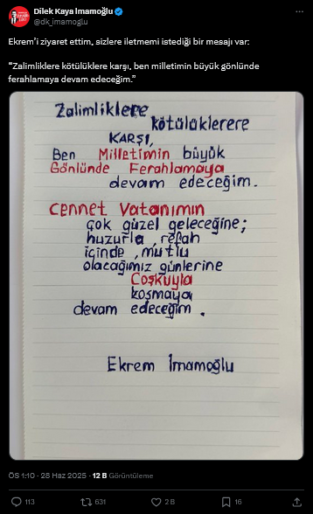 Dilek Kaya İmamoğlu
@dk_imamoglu
Ekrem'i ziyaret ettim, sizlere iletmemi istediği bir mesajı var:
"Zalimliklere kötülüklere karşı, ben milletimin büyük gönlünde
ferahlamaya devam edeceğim."
Zalimliklere
kötülüklerere
KARŞI,
Ben Milletimin büyük
Gönlünde Ferahlamaya
devam edeceğim.
Cennet Vatanımın
çok güzel geleceğine;
huzurla, refah
içinde, mutlu
olacağımız günlerine
Coşkuyla
koşmaya
devam edeceğim.
Ekrem İmamoğlu
ÖS 1:10 · 28 Haz 2025 · 12 B Görüntüleme
113 631 2 B 16